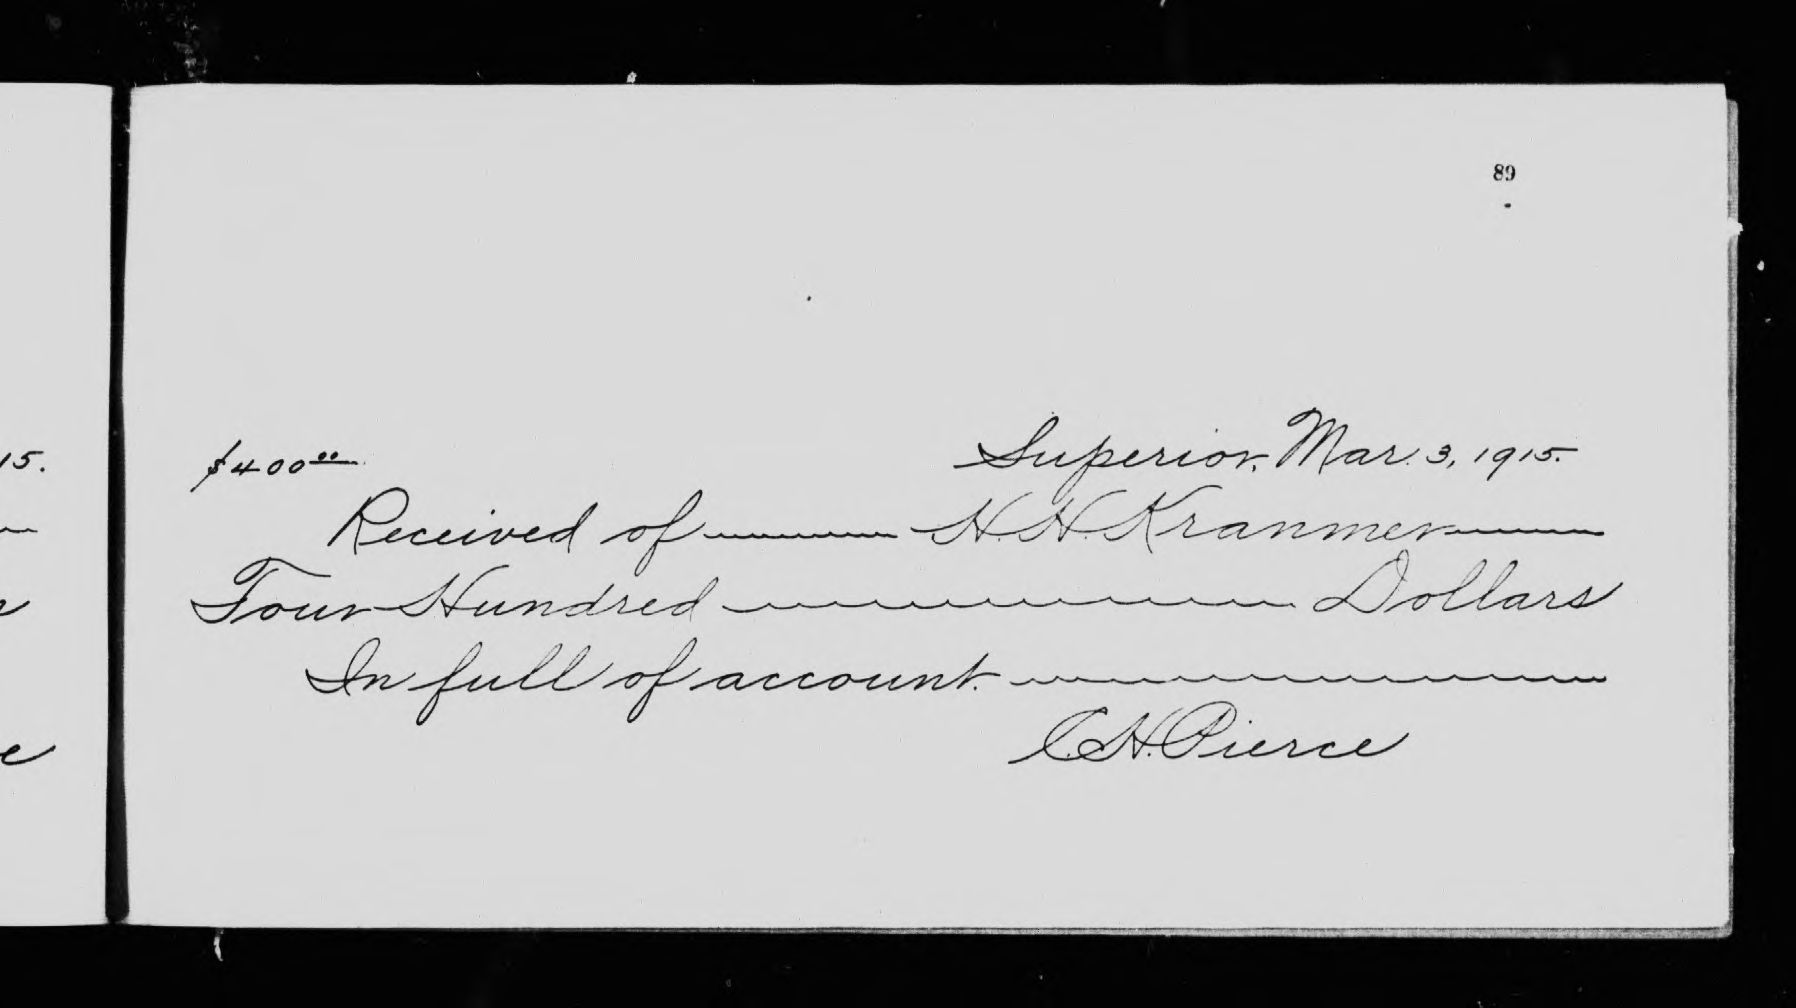 89
15.
$400.00 Superior, Mar. 3, 1915.
Received of H. H. Kranmer
Four Hundred Dollars
In full of account.
C. H. Pierce